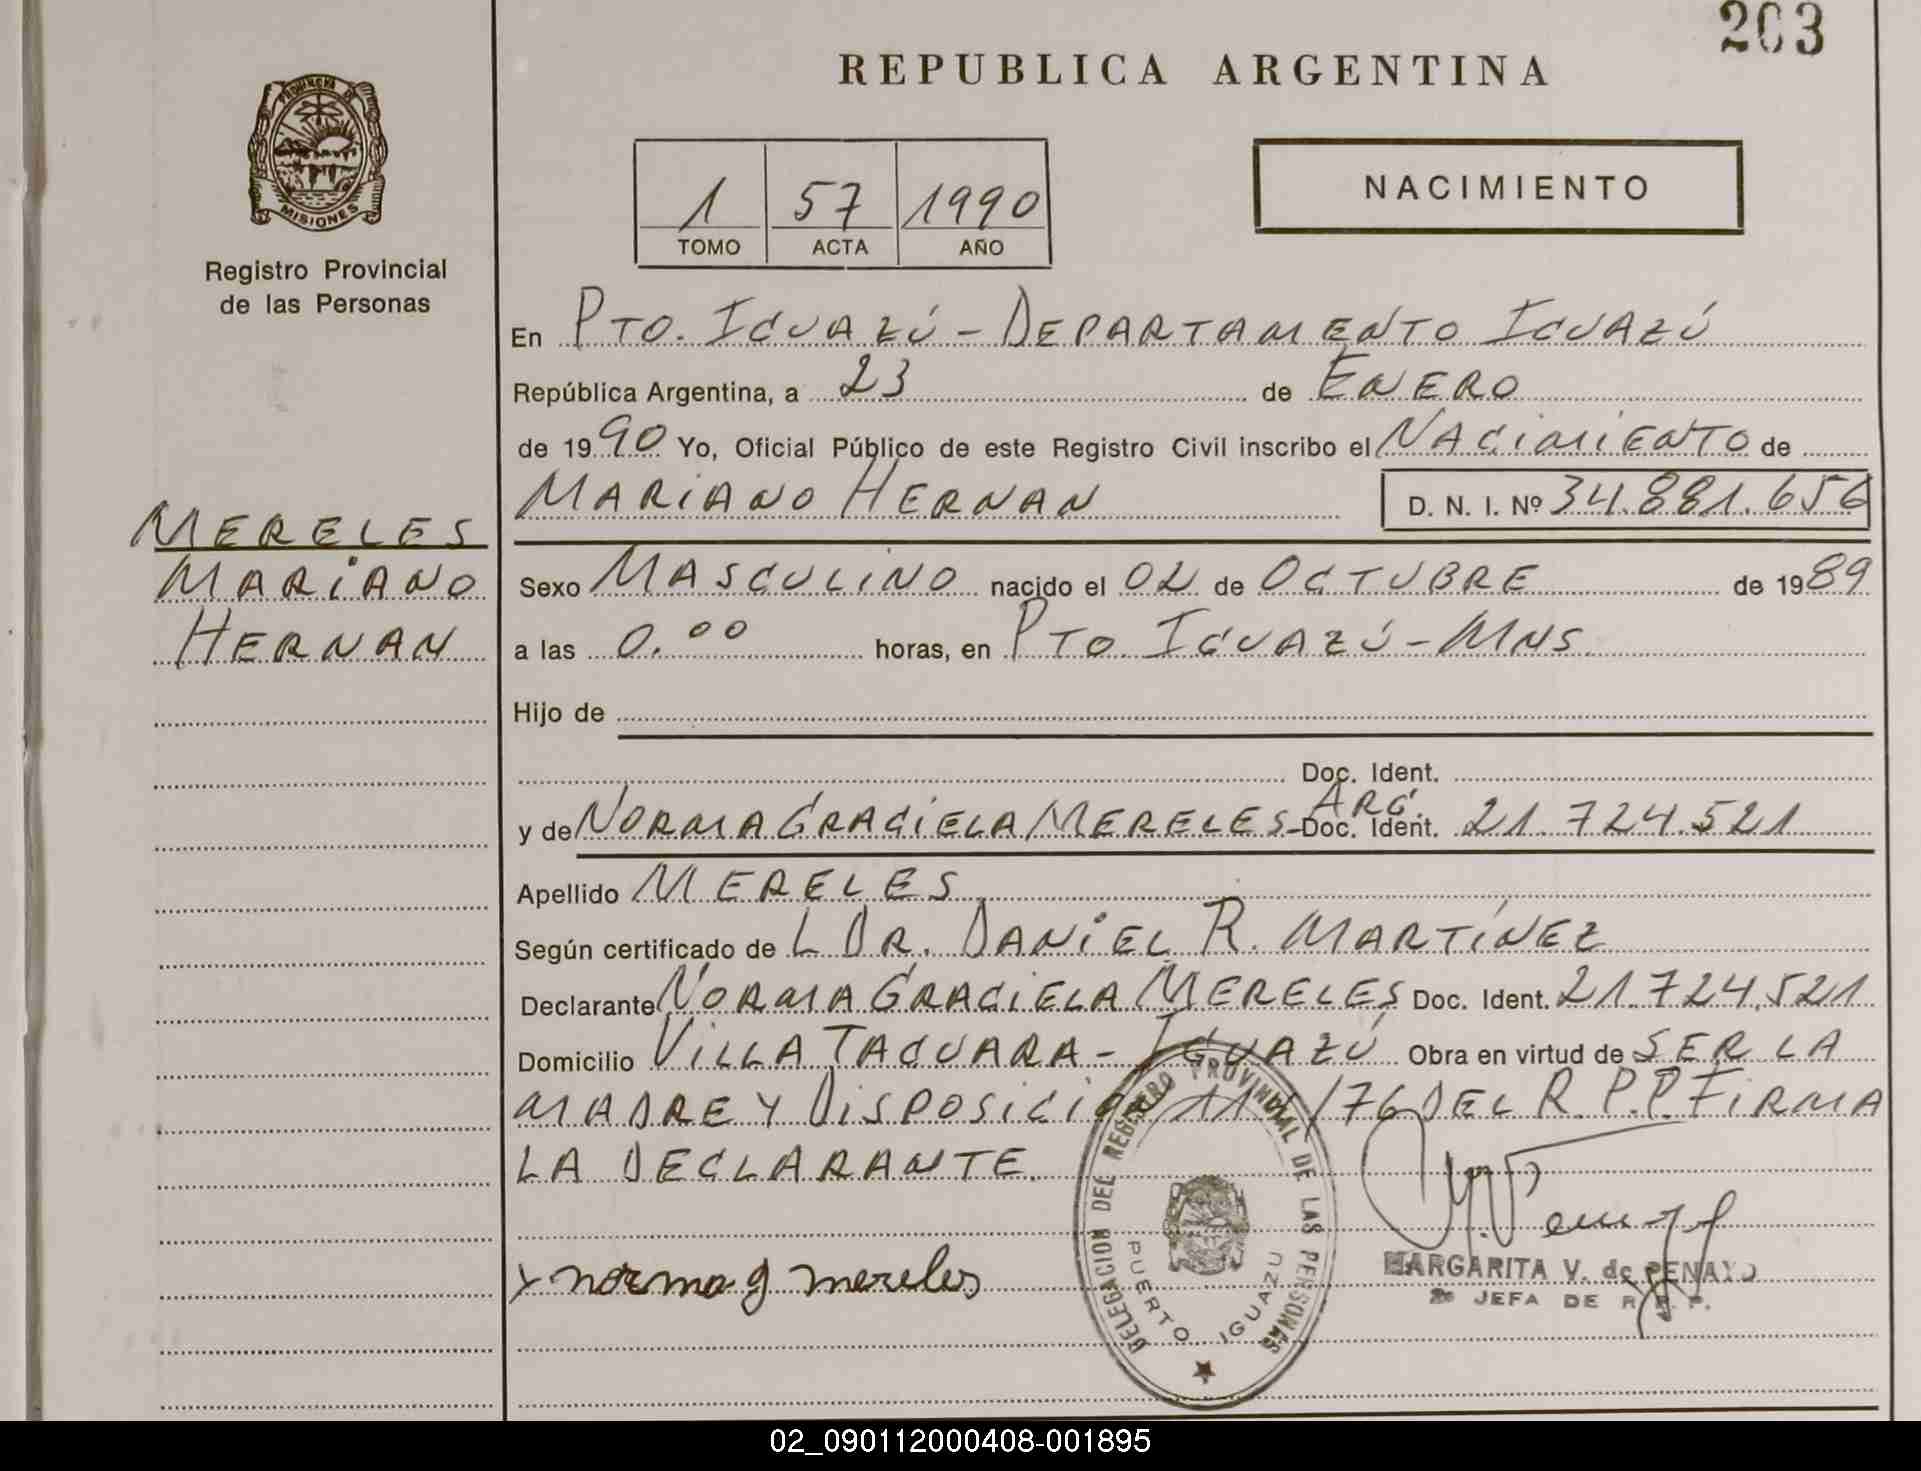 203
REPUBLICA ARGENTINA
PROVINCIA DE
MISIONES
Registro Provincial
de las Personas
1 57 1990
TOMO ACTA AÑO
NACIMIENTO
En PTO. IGUAZÚ - DEPARTAMENTO IGUAZÚ
República Argentina, a 23 de ENERO
de 1990 Yo, Oficial Público de este Registro Civil inscribo el NACIMIENTO de
MARIANO HERNAN D. N. I. Nº 34.881.656
MERELES
MARIANO
HERNAN
Sexo MASCULINO nacido el 02 de OCTUBRE de 1989
a las 0.00 horas, en PTO. IGUAZÚ - MNS.
Hijo de
Doc. Ident.
ARG.
y de NORMA GRACIELA MERELES - Doc. Ident. 21.724.521
Apellido MERELES
Según certificado de L DR. DANIEL R. MARTÍNEZ
Declarante NORMA GRACIELA MERELES Doc. Ident. 21.724.521
Domicilio VILLA TACUARA - IGUAZÚ Obra en virtud de SER LA
MADRE Y DISPOSICIÓN /76 DEL R.P.P. FIRMA
LA DECLARANTE.
x norma g mereles
DELEGACION DEL REGISTRO PROVINCIAL DE LAS PERSONAS
PUERTO IGUAZU
MARGARITA V. de PENAYO
2º JEFA DE R. P. P.
02_090112000408-001895